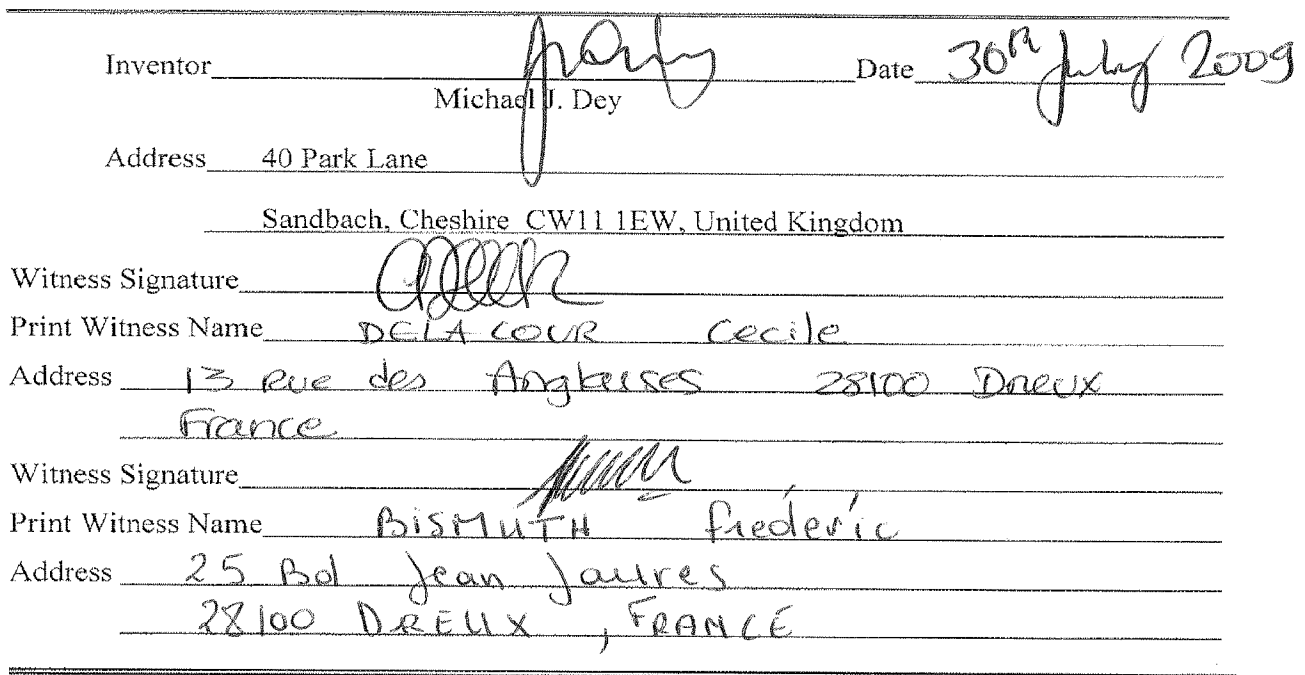 Inventor Date 30th July 2009
Michael J. Dey
Address 40 Park Lane
Sandbach, Cheshire CW11 1EW, United Kingdom
Witness Signature
Print Witness Name DELACOUR Cecile
Address 13 Rue des Anglaises 28100 Dreux
France
Witness Signature
Print Witness Name BISMUTH fréderic
Address 25 Bd Jean Jaures
28100 DREUX, FRANCE